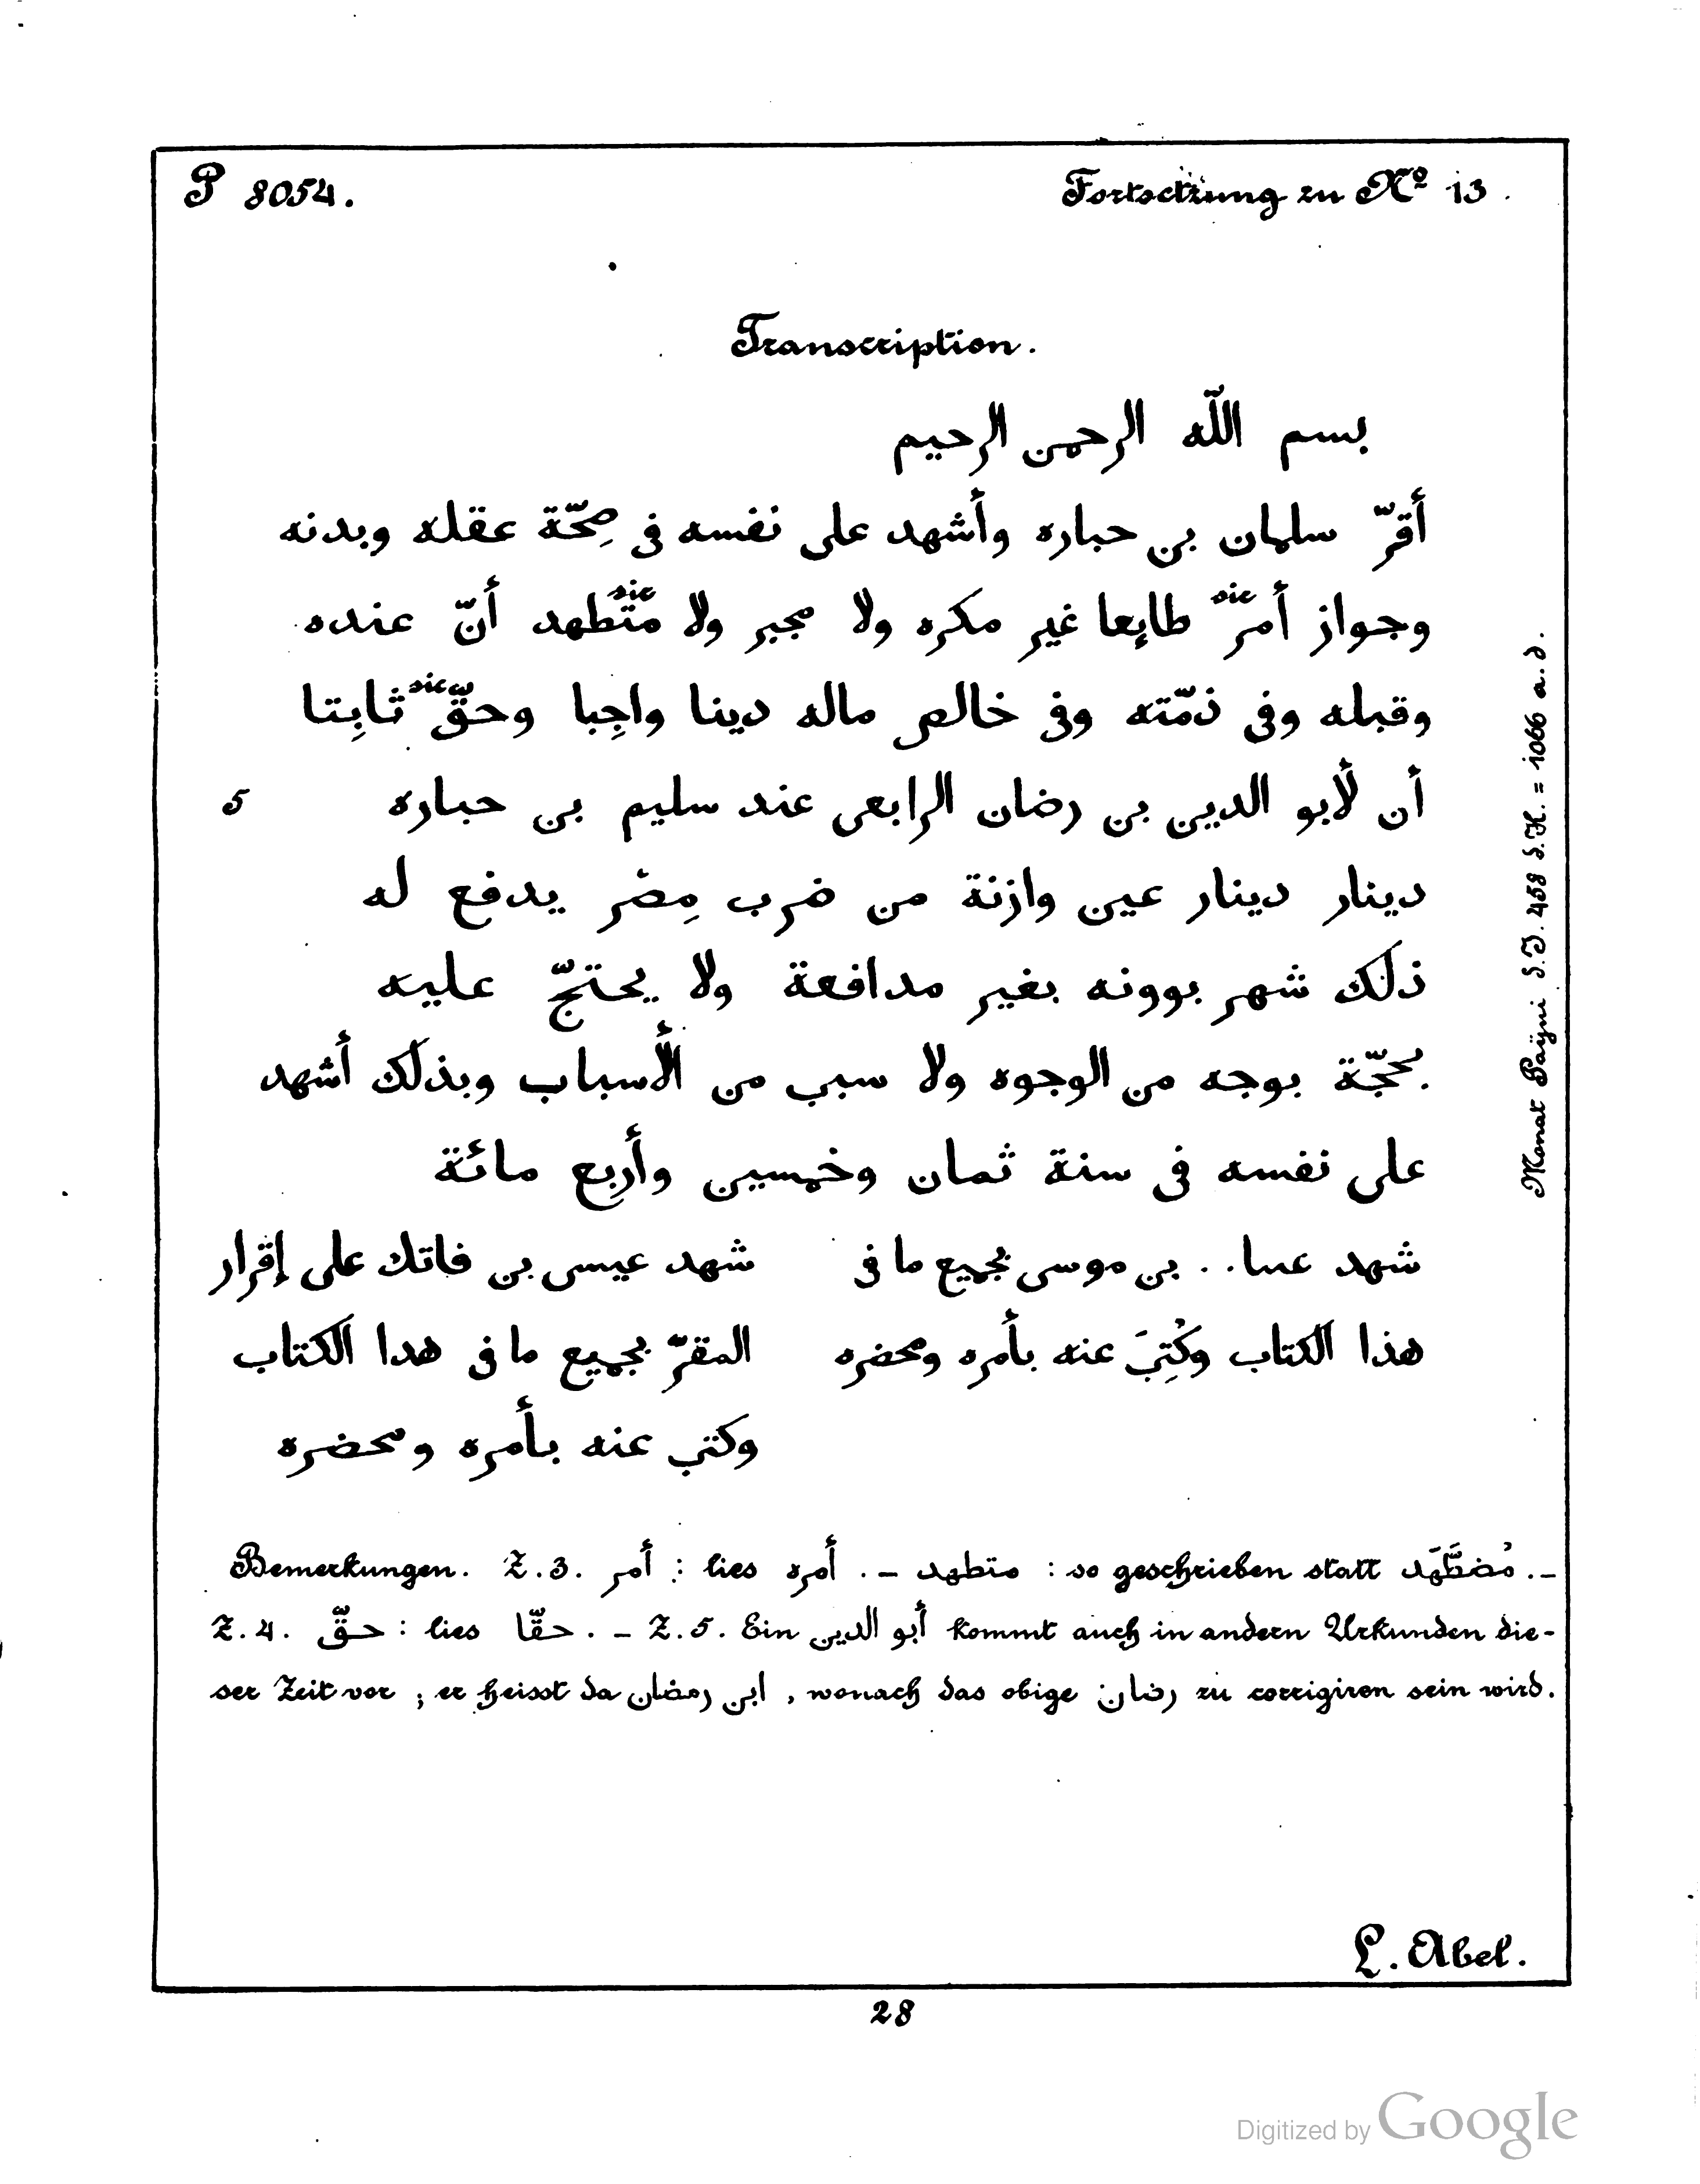 P 8054.
Fortsetzung zu Nº 13.
Transcription.
بسم اللّه الرحمن الرحيم
أقرّ سلمان بن حباره وأشهد على نفسه فى صِحّة عقله وبدنه
وجواز أمرّ sic طايِعا غير مكره ولا مجبر ولا متّطهد sic أنّ عنده
وقبله وفى ذمّته وفى خالص ماله دينا واجِبا وحقّ sic ثابِتا
5 أن لأبو الدين بن رضان الرابعى عند سليم بن حباره
دينار دينار عين وازنة من ضرب مِصْر يدفع له
ذلك شهر بوونه بغير مدافعة ولا يحتجّ عليه
بحجّة بوجه من الوجوه ولا سبب من الأسباب وبذلك أشهد
على نفسه فى سنة ثمان وخمسين وأربع مائة
شهد عسا.. بن موسى بجميع ما فى
هذا الكتاب وكُتِبَ عنه بأمره ومحضره
شهد عيسى بن فاتك على إقرار
المقرّ بجميع ما فى هدا الكتاب
وكتب عنه بأمره ومحضره
Monat Payni d.J. 458 d.H. = 1066 a.d.
Bemerkungen. Z.3. أمر : lies أمره. – متطهد : so geschrieben statt مُضطَّهَد. –
Z.4. حقّ : lies حقّا. – Z.5. Ein أبو الدين kommt auch in andern Urkunden die-
ser Zeit vor; er heisst da ابن رمضان, wonach das obige رضان zu corrigiren sein wird.
L. Abel.
28
Digitized by Google